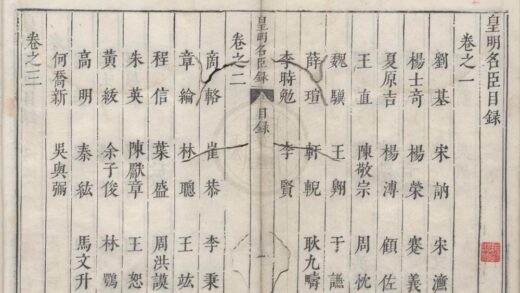 皇明名臣目録
卷之一
劉基 宋訥 宋濂
楊士奇 楊榮 蹇義
夏原吉 楊溥 顧佐
王直 陳敬宗 周忱
魏驥 王翱 于謙
薛瑄 軒輗 耿九疇
李時勉 李賢
皇明名臣録 目録 一
卷之二
商輅 崔恭 李秉
章綸 林聰 王竑
程信 葉盛 周洪謨
朱英 陳獻章 王恕
黃紱 余子俊 林鶚
高明 秦紘 馬文升
何喬新 吳與弼
卷之三